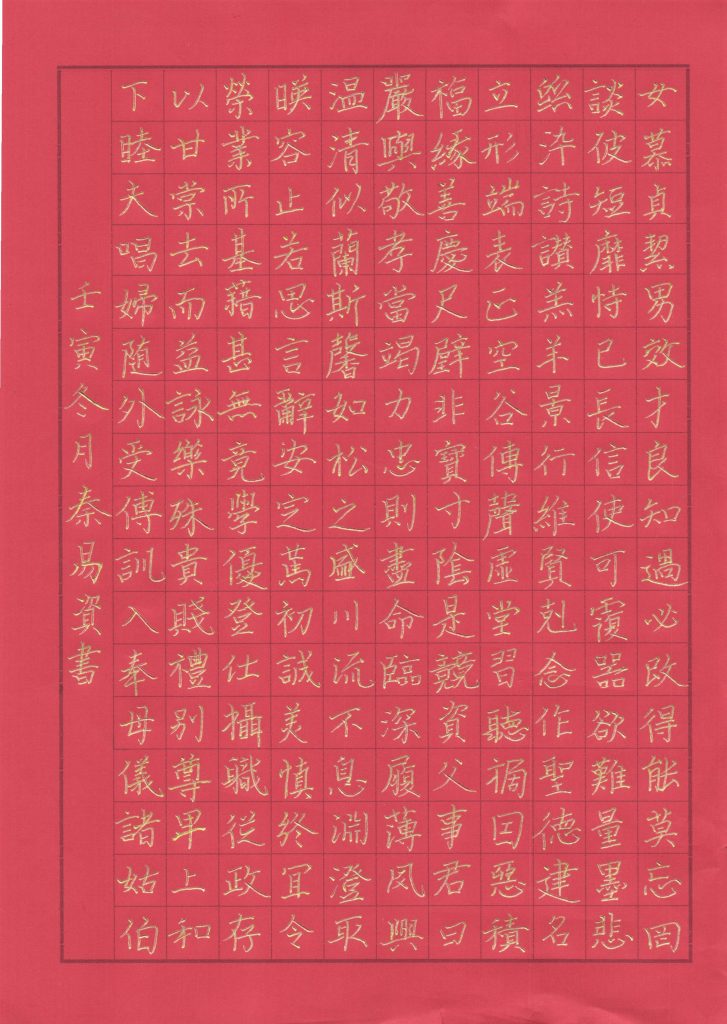 女慕貞絜男效才良知過必改得能莫忘罔
談彼短靡恃已長信使可覆器欲難量墨悲
絲染詩讃羔羊景行維賢剋念作聖德建名
立形端表正空谷傳聲虛堂習聽禍因惡積
福緣善慶尺璧非寶寸陰是競資父事君曰
嚴與敬孝當竭力忠則盡命臨深履薄夙興
温清似蘭斯馨如松之盛川流不息淵澄取
暎容止若思言辭安定篤初誠美慎終宜令
榮業所基藉甚無竟學優登仕攝職從政存
以甘棠去而益詠樂殊貴賤禮別尊卑上和
下睦夫唱婦随外受傅訓入奉母儀諸姑伯
壬寅冬月秦易資書